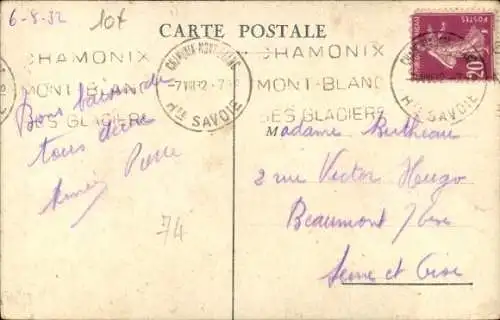 6-8-32
10f
CARTE POSTALE
CHAMONIX
MONT-BLANC
SES GLACIERS
CHAMONIX-MONT-BLANC
7 VIII 32
Hte SAVOIE
CHAMONIX
MONT-BLANC
SES GLACIERS
Hte SAVOIE
20c
Bons baisers de
tous deux
Pierre
74
Madame Bertheau
2 rue Victor Hugo
Beaumont s/ Oise
Seine et Oise